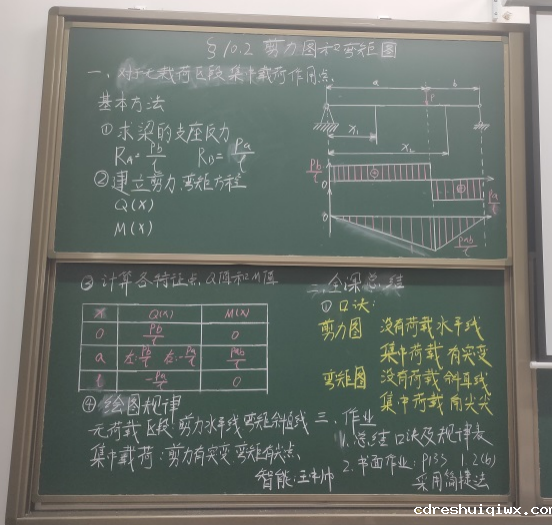 §10.2 剪力图和弯矩图
一、对于无载荷区段集中载荷作用点、
基本方法
① 求梁的支座反力
RA=Pb/l RB=Pa/l
② 建立剪力、弯矩方程
Q(X)
M(X)
a b
P
X₁
X₂
Pb/l
0
⊕
⊖
Pa/l
0
Pab/l
③ 计算各特征点、Q值和M值
X Q(X) M(X)
0 Pb/l 0
a 左:Pb/l 右:-Pa/l Pab/l
l -Pa/l 0
④ 绘图规律
无荷载区段:剪力水平线、弯矩斜直线
集中载荷:剪力有突变、弯矩有尖点、
智能:王
二、全课总结
① 口诀:
剪力图 没有荷载水平线
集中荷载有突变
弯矩图 没有荷载斜直线
集中荷载有尖尖
三、作业
1.总结口诀及规律
2.书面作业:P133 1.2(b)
采用简捷法
cdreshuiqiwx.com